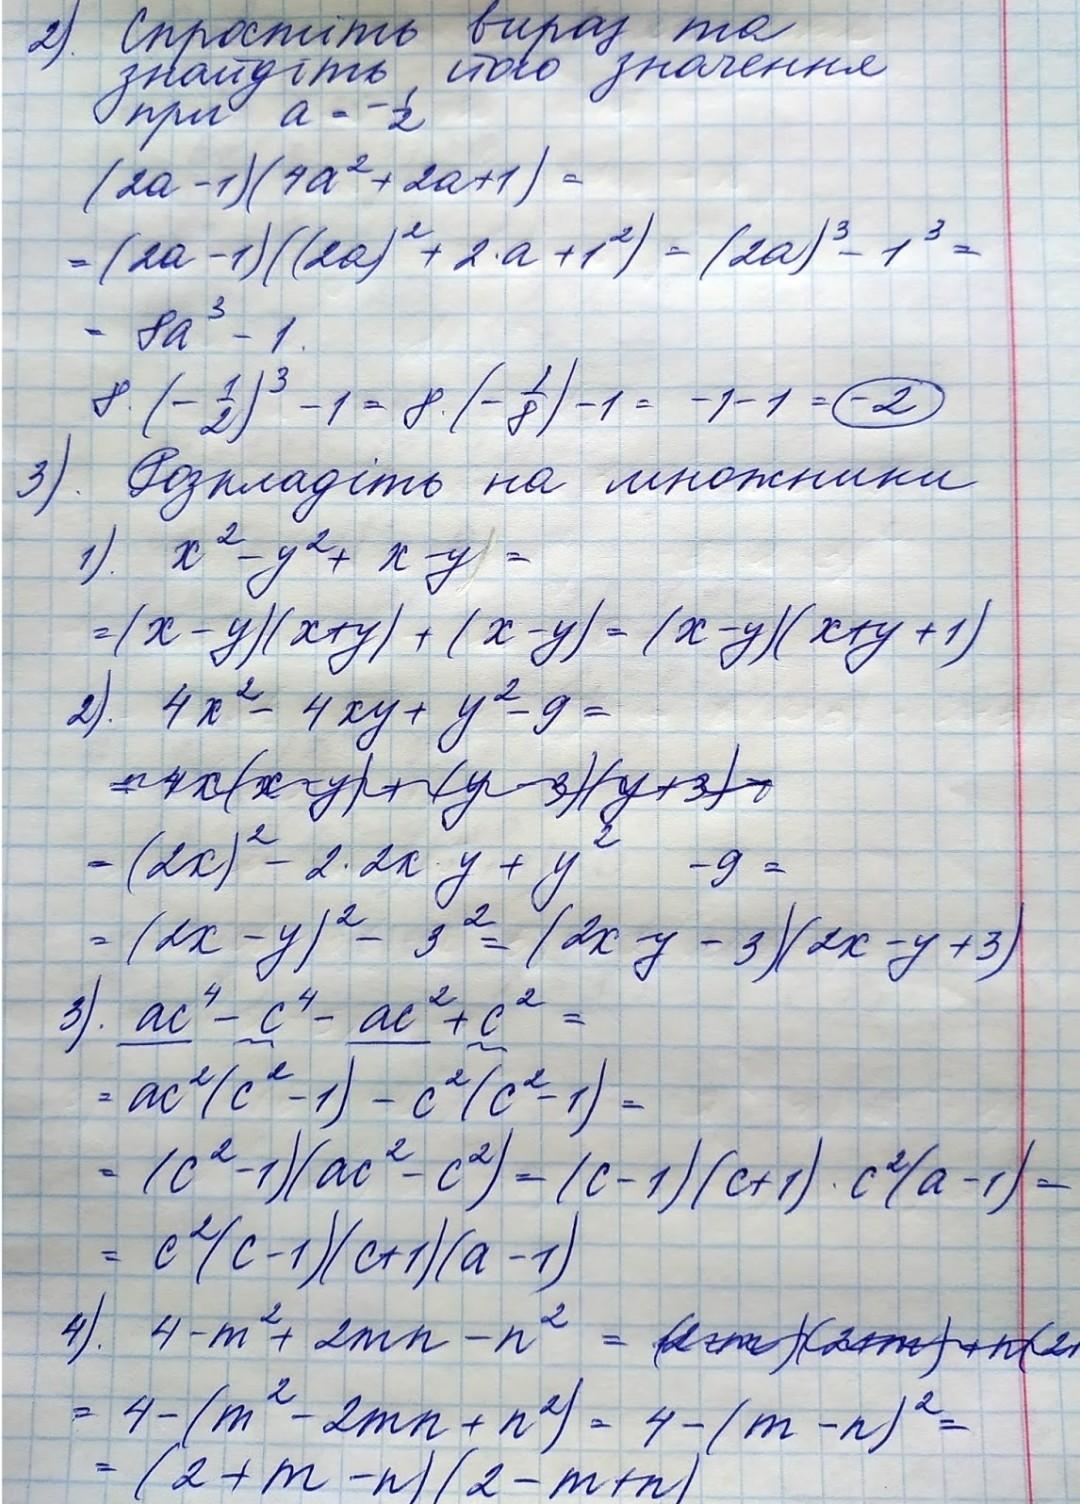 2). Спростіть вираз та
знайдіть його значення
при a = -1/2
(2a - 1)(4a² + 2a + 1) =
= (2a - 1)((2a)² + 2·a + 1²) = (2a)³ - 1³ =
= 8a³ - 1.
8·(-1/2)³ - 1 = 8·(-1/8) - 1 = -1 - 1 = -2
3). Розкладіть на множники
1). x² - y² + x - y =
= (x - y)(x + y) + (x - y) = (x - y)(x + y + 1)
2). 4x² - 4xy + y² - 9 =
= 4x(x - y) + (y - 3)(y + 3) =
= (2x)² - 2·2x·y + y² - 9 =
= (2x - y)² - 3² = (2x - y - 3)(2x - y + 3)
3). ac⁴ - c⁴ - ac² + c² =
= ac²(c² - 1) - c²(c² - 1) =
= (c² - 1)(ac² - c²) = (c - 1)(c + 1)·c²(a - 1) =
= c²(c - 1)(c + 1)(a - 1)
4). 4 - m² + 2mn - n² = (2 - m)(2 + m) + n(2
= 4 - (m² - 2mn + n²) = 4 - (m - n)² =
= (2 + m - n)(2 - m + n)